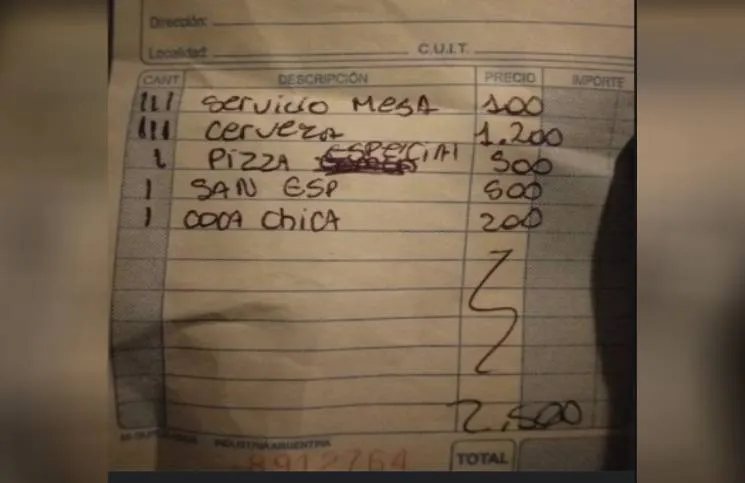 Dirección:
Localidad: C.U.I.T.
CANT DESCRIPCIÓN PRECIO IMPORTE
III Servicio MESA 100
III CERVEZA 1.200
I PIZZA ESPECIAl 500
I SAN ESP 500
I COCA CHICA 200
2.500
INDUSTRIA ARGENTINA
8912764 TOTAL